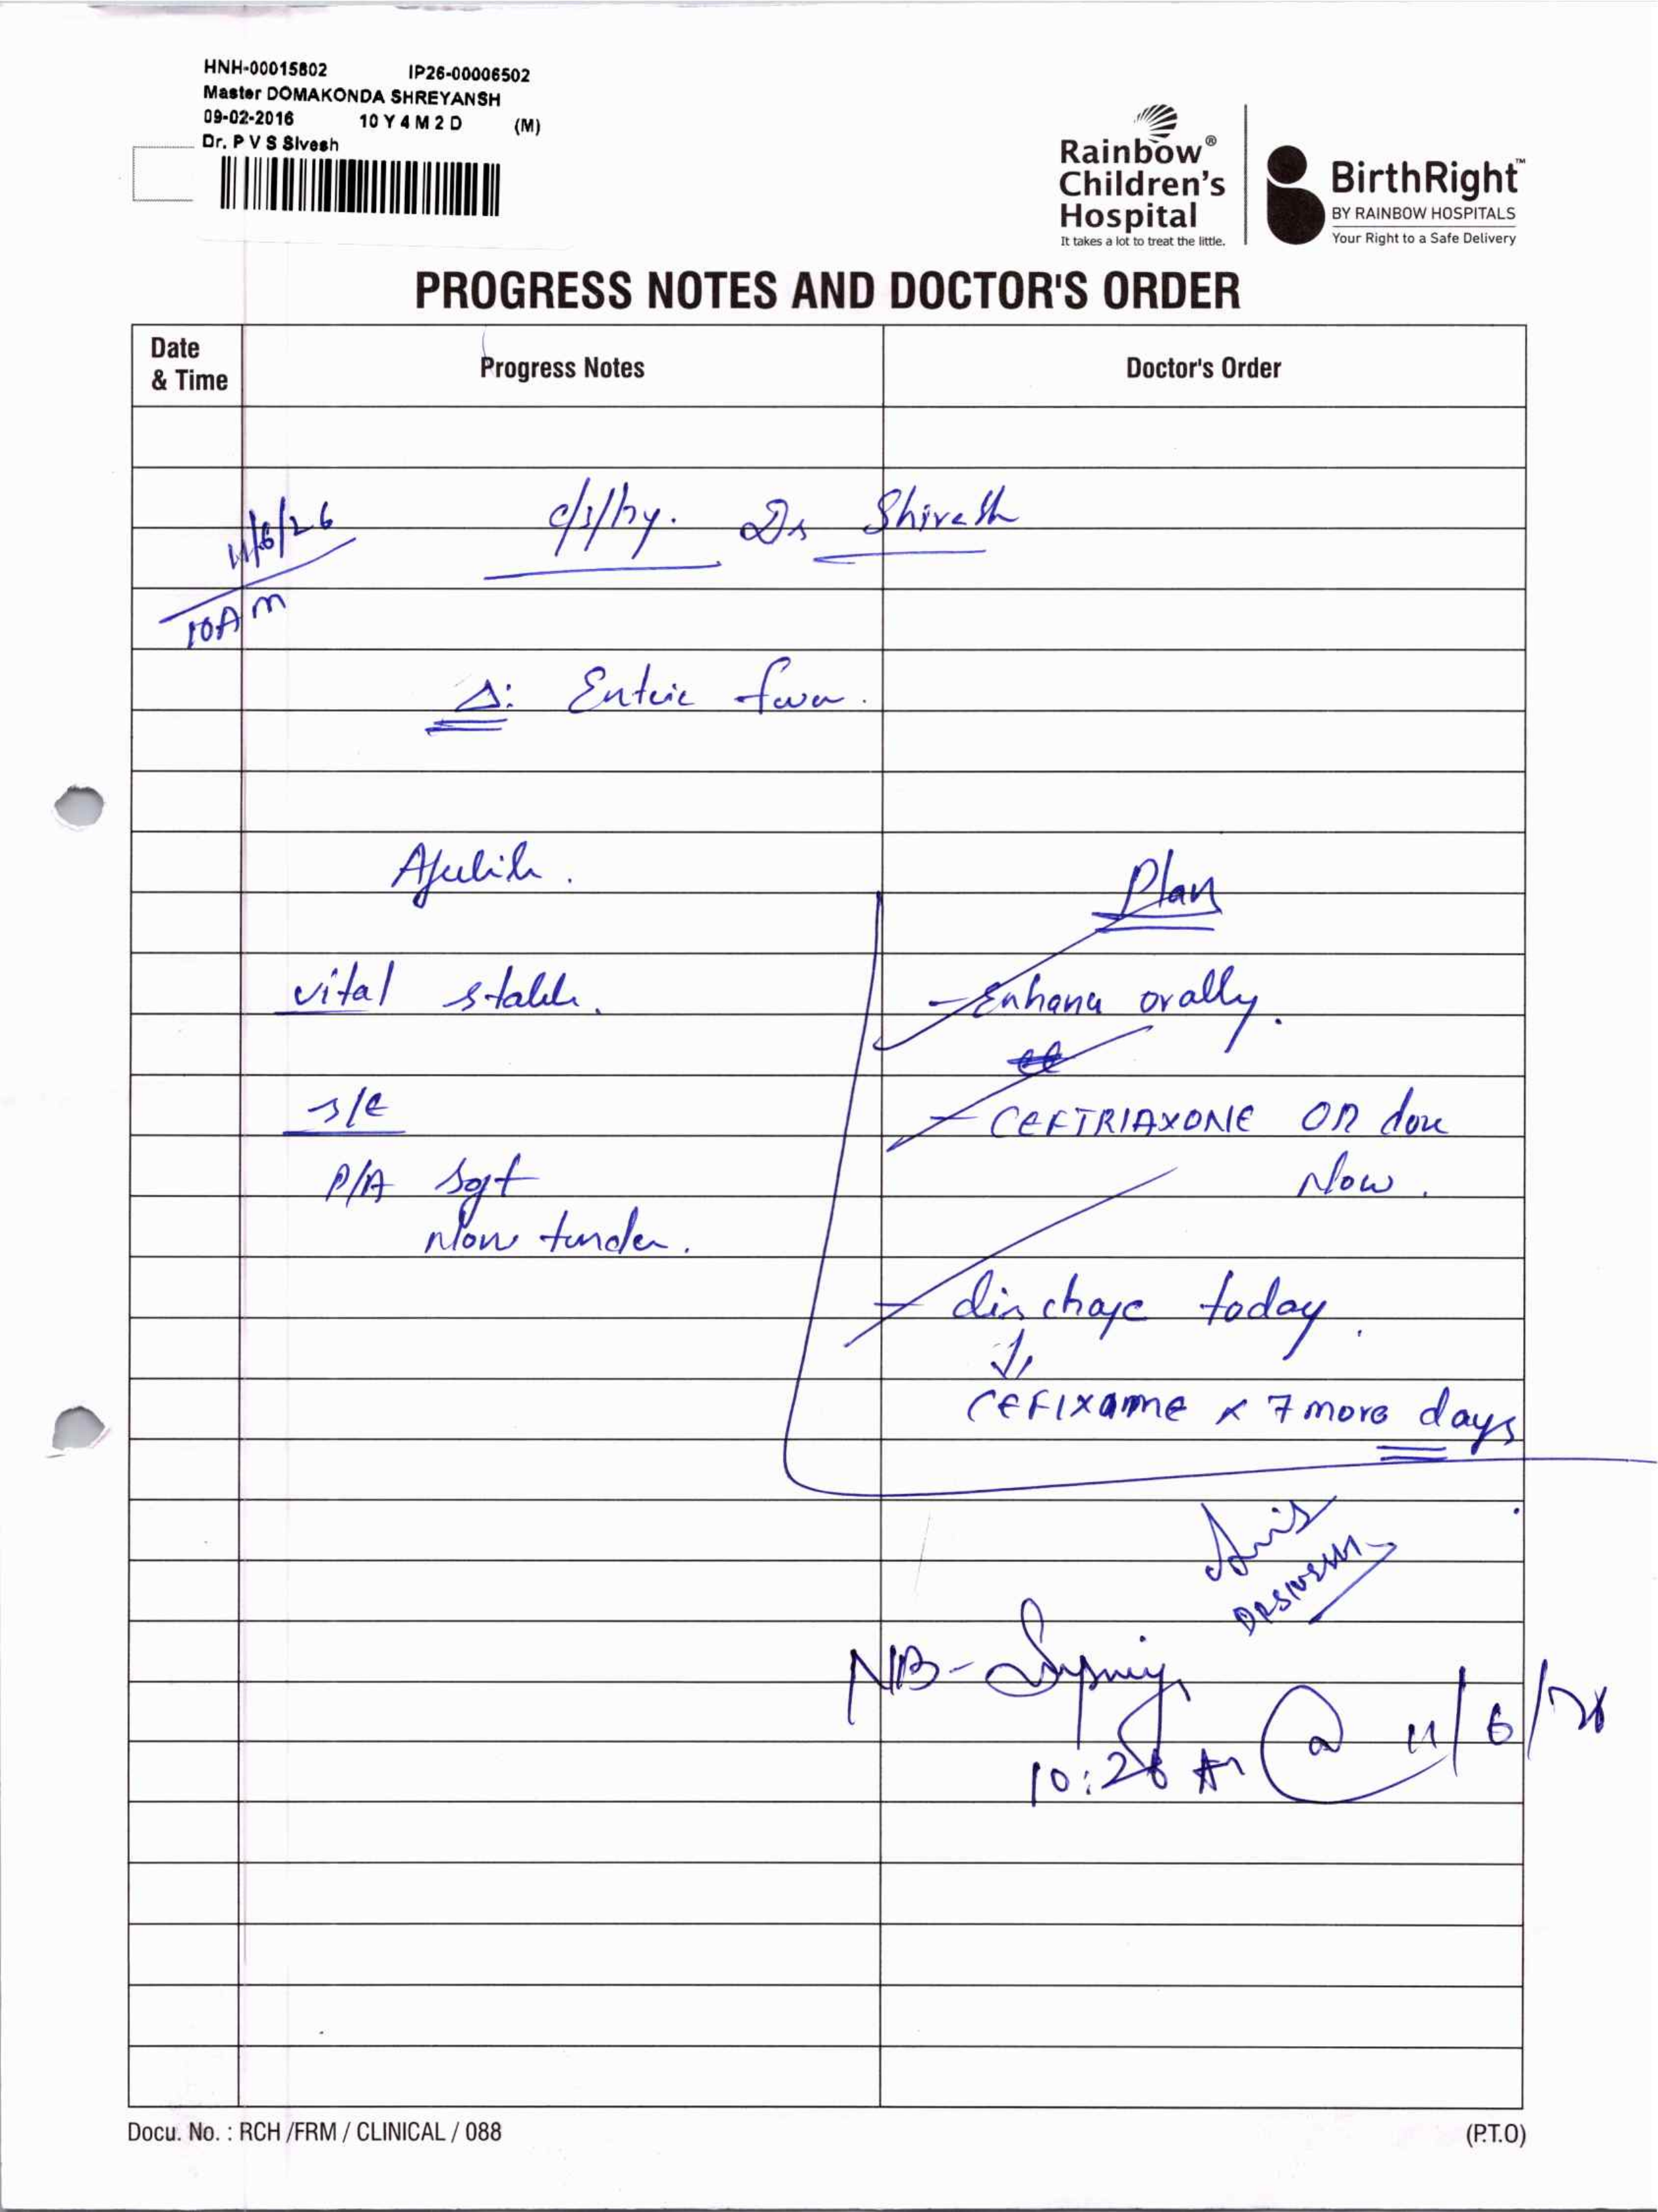 HNH-00015802 IP26-00006502
Master DOMAKONDA SHREYANSH
09-02-2016 10 Y 4 M 2 D (M)
Dr. P V S Sivesh
Rainbow®
Children's
Hospital
It takes a lot to treat the little.
BirthRight™
BY RAINBOW HOSPITALS
Your Right to a Safe Delivery
PROGRESS NOTES AND DOCTOR'S ORDER
Date & Time Progress Notes Doctor's Order
11/6/26 c/s/by. Dr Shivesh
10AM
Δ: Enteric fever.
Afebrile. Plan
vital stable. - Enhance orally.
s/e - CEFTRIAXONE on dose
P/A soft Now.
Non tender.
- discharge today.
↓
CEFIXAME x 7 more days
DR SIVESH
NB-
10:28 Am @ 11/6/26
Docu. No. : RCH /FRM / CLINICAL / 088 (P.T.O)